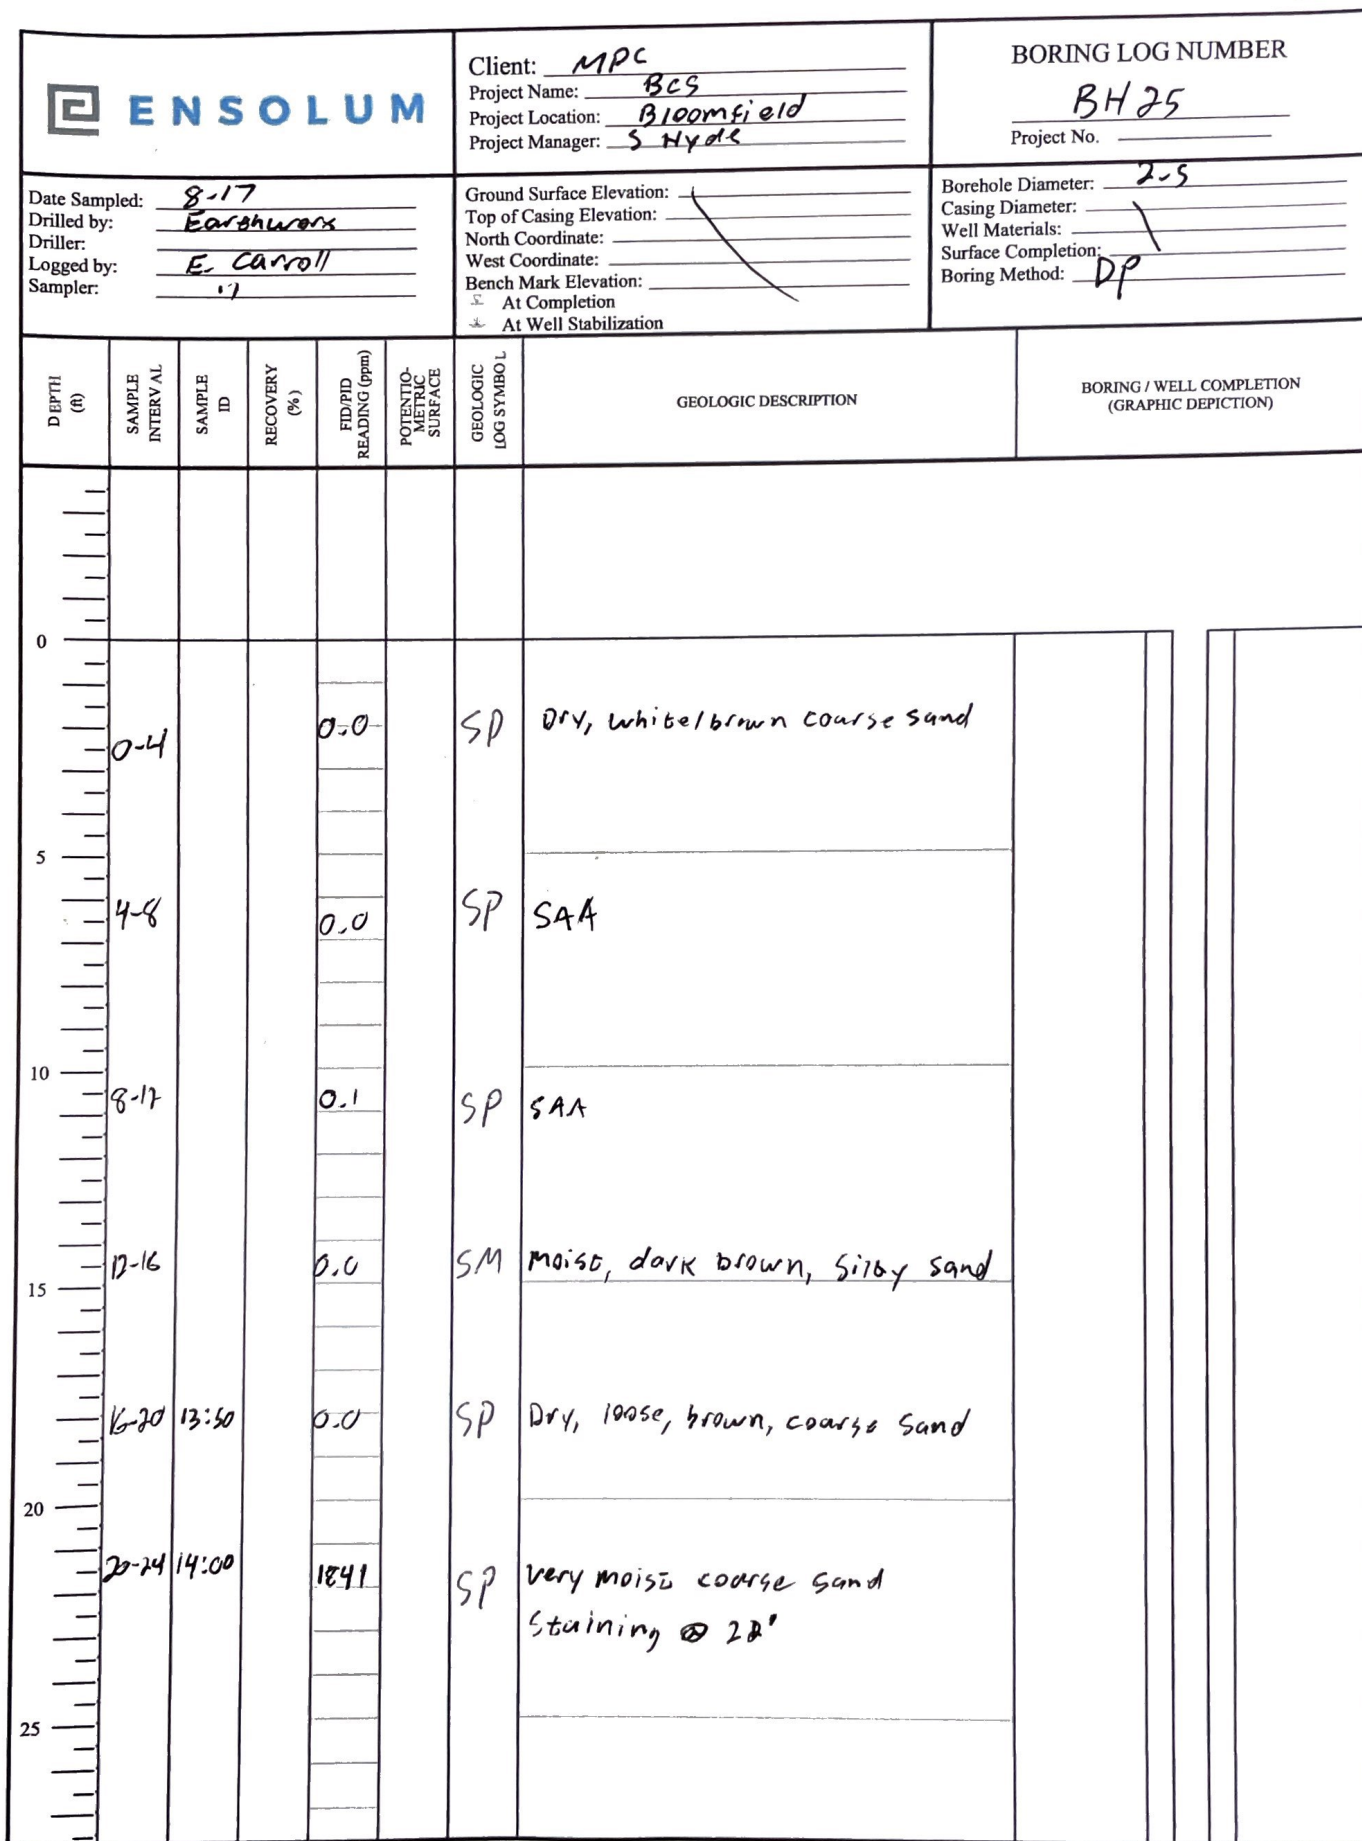 ENSOLUM
Client: MPC
Project Name: BCS
Project Location: Bloomfield
Project Manager: S Hyde
BORING LOG NUMBER
BH25
Project No.
Date Sampled: 8-17
Drilled by: Earthworx
Driller:
Logged by: E. Carroll
Sampler: "
Ground Surface Elevation:
Top of Casing Elevation:
North Coordinate:
West Coordinate:
Bench Mark Elevation:
At Completion
At Well Stabilization
Borehole Diameter: 2.5
Casing Diameter:
Well Materials:
Surface Completion:
Boring Method: DP
DEPTH (ft)
SAMPLE INTERVAL
SAMPLE ID
RECOVERY (%)
FID/PID READING (ppm)
POTENTIO-METRIC SURFACE
GEOLOGIC LOG SYMBOL
GEOLOGIC DESCRIPTION
BORING / WELL COMPLETION
(GRAPHIC DEPICTION)
0
0-4 0.0 SP Dry, white/brown coarse sand
5
4-8 0.0 SP SAA
10
8-12 0.1 SP SAA
12-16 0.0 SM Moist, dark brown, silty sand
15
16-20 13:50 0.0 SP Dry, loose, brown, coarse sand
20
20-24 14:00 1841 SP very moist coarse sand
Staining @ 22'
25